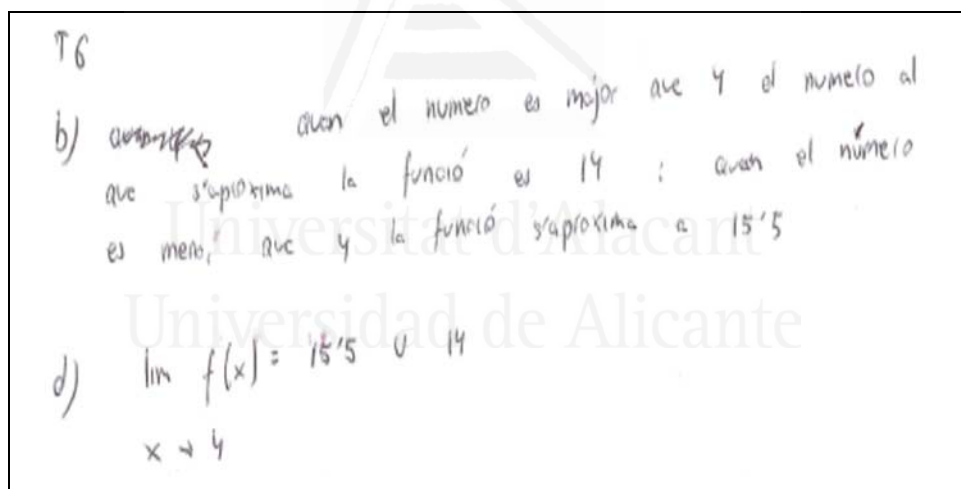 T6
b) quan el numero es major que 4 el numero al
que s'aproxima la funció es 14 i quan el número
es menor que 4 la funció s'aproxima a 15'5
Universitat d'Alacant
Universidad de Alicante
d) lim f(x) = 15'5 U 14
x → 4